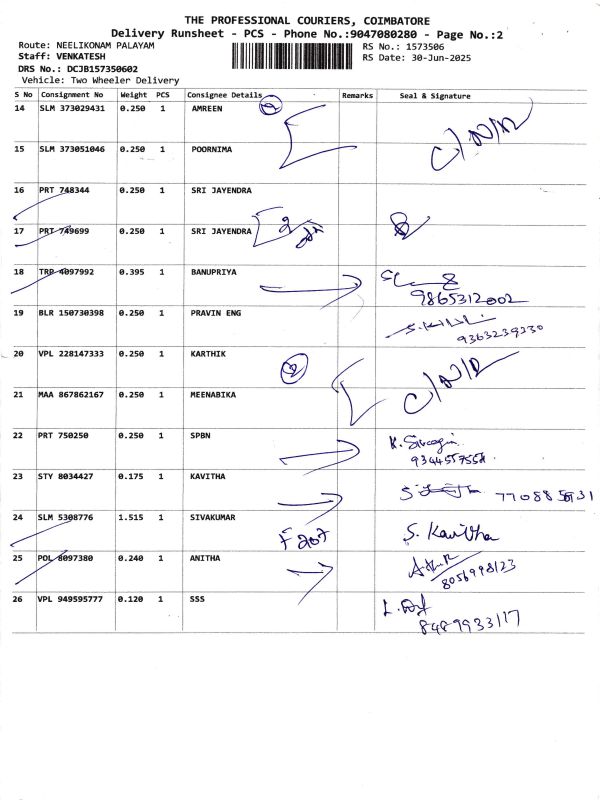 THE PROFESSIONAL COURIERS, COIMBATORE
Delivery Runsheet - PCS - Phone No.:9047080280 - Page No.:2
Route: NEELIKONAM PALAYAM RS No.: 1573506
Staff: VENKATESH RS Date: 30-Jun-2025
DRS No.: DCJB157350602
Vehicle: Two Wheeler Delivery
S No Consignment No Weight PCS Consignee Details Remarks Seal & Signature
14 SLM 373029431 0.250 1 AMREEN 2 C/N/R
15 SLM 373051046 0.250 1 POORNIMA
16 PRT 748344 0.250 1 SRI JAYENDRA
17 PRT 749699 0.250 1 SRI JAYENDRA 2
18 TRP 4097992 0.395 1 BANUPRIYA
9865312002
19 BLR 150730398 0.250 1 PRAVIN ENG
9363239330
20 VPL 228147333 0.250 1 KARTHIK 2 C/N/R
21 MAA 867862167 0.250 1 MEENABIKA
22 PRT 750250 0.250 1 SPBN
23 STY 8034427 0.175 1 KAVITHA
24 SLM 5308776 1.515 1 SIVAKUMAR F207 S. Kavitha
25 POL 8097380 0.240 1 ANITHA
8056998123
26 VPL 949595777 0.120 1 SSS
8489933117